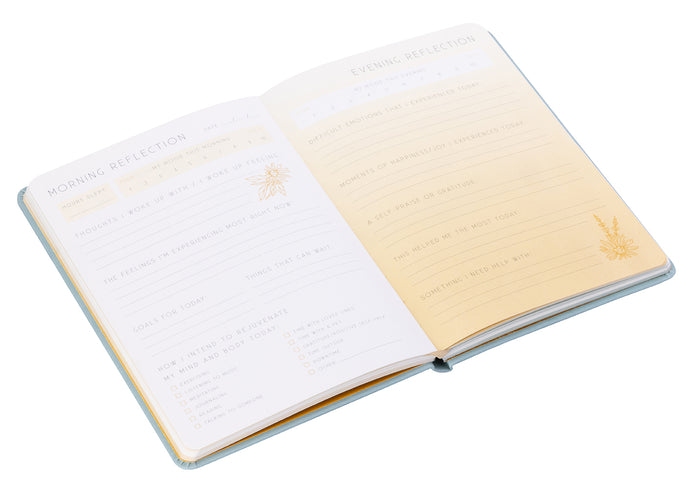 MORNING REFLECTION
DATE
HOURS SLEPT
MY MOOD THIS MORNING
1 2 3 4 5 6 7 8 9 10
THOUGHTS I WOKE UP WITH / I WOKE UP FEELING
THE FEELINGS I'M EXPERIENCING MOST RIGHT NOW
GOALS FOR TODAY
THINGS THAT CAN WAIT
HOW I INTEND TO REJUVENATE
MY MIND AND BODY TODAY
EXERCISING
LISTENING TO MUSIC
MEDITATING
JOURNALING
READING
TALKING TO SOMEONE
TIME WITH LOVED ONES
TIME WITH A PET
TIME OUTSIDE
DOWNTIME
OTHER
EVENING REFLECTION
MY MOOD THIS EVENING
1 2 3 4 5 6 7 8 9 10
DIFFICULT EMOTIONS THAT I EXPERIENCED TODAY
MOMENTS OF HAPPINESS/JOY I EXPERIENCED TODAY
A SELF-PRAISE OR GRATITUDE
THIS HELPED ME THE MOST TODAY
SOMETHING I NEED HELP WITH